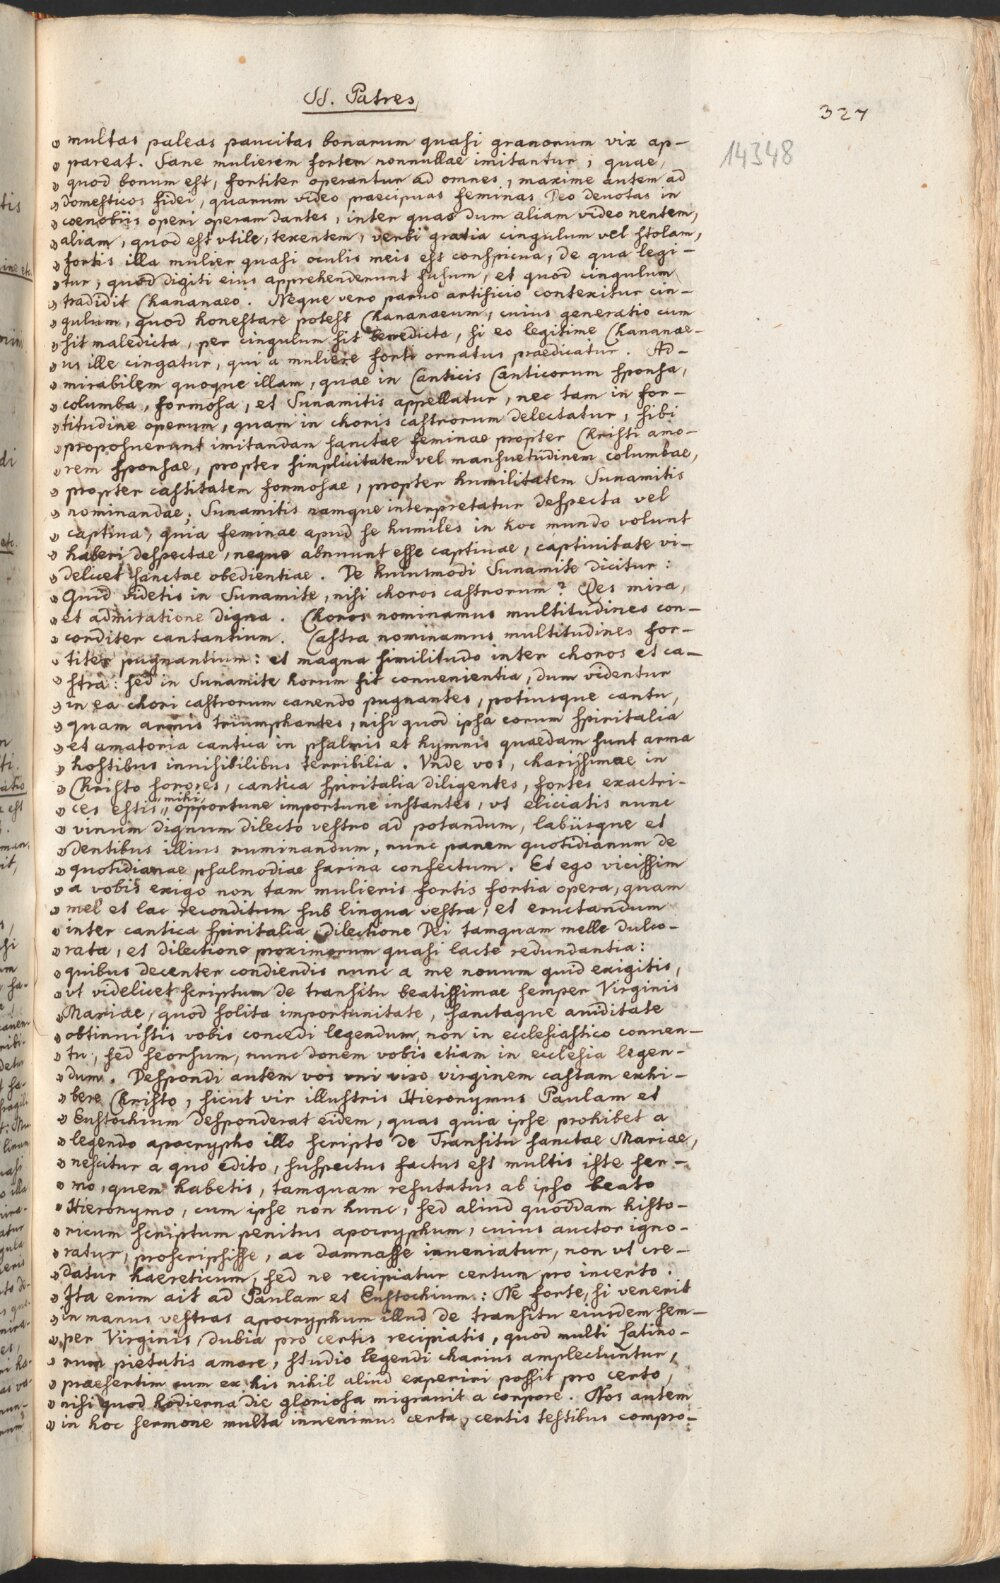 SS. Patres
327
14348
» multas paleas paucitas bonarum quasi granorum vix ap-
» pareat. Sane mulierem fortem nonnullae imitantur, quae,
» quod bonum est, fortiter operantur ad omnes, maxime autem ad
» domesticos fidei, quarum video praecipuas feminas Deo devotas in
» coenobiis operi operam dantes, inter quas dum aliam video nentem,
» aliam, quod est vtile, texentem, verbi gratia cingulum vel stolam,
» fortis illa mulier quasi oculis meis est conspicua, de qua legi-
» tur, quod digiti eius apprehenderunt fusum, et quod cingulum
» tradidit Chananaeo. Neque vero paruo artificio contexitur cin-
» gulum, quod honestare potest Chananaeum, cuius generatio cum
» sit maledicta, per cingulum fit benedicta, si eo legitime Chananae-
» us ille cingatur, qui a muliere forti ornatus praedicatur. Ad-
» mirabilem quoque illam, quae in Canticis Canticorum sponsa,
» columba, formosa, et Sunamitis appellatur, nec tam in for-
» titudine operum, quam in choris castrorum delectatur, sibi
» proposuerunt imitandam sanctae feminae propter Christi amo-
» rem sponsae, propter simplicitatem vel mansuetudinem columbae,
» propter castitatem formosae, propter humilitatem Sunamitis
» nominandae; Sunamitis namque interpretatur despecta vel
» captiua, quia feminae apud se humiles in hoc mundo volunt
» haberi despectae, neque abnuunt esse captiuae, captiuitate vi-
» delicet sanctae obedientiae. De huiusmodi Sunamite dicitur:
» Quid videtis in Sunamite, nisi choros castrorum? Res mira,
» et admiratione digna. Choros nominamus multitudines con-
» corditer cantantium. Castra nominamus multitudines for-
» titer pugnantium: et magna similitudo inter choros et ca-
» stra: sed in Sunamite horum fit convenientia, dum videntur
» in ea chori castrorum canendo pugnantes, potiusque cantu,
» quam armis triumphantes, nisi quod ipsa eorum spiritalia
» et amatoria cantica in psalmis et hymnis quaedam sunt arma
» hostibus inuisibilibus terribilia. Vnde vos, charissimae in
» Christo sorores, cantica spiritalia diligentes, fortes exactri-
» ces estis mihi, opportune importune instantes, vt eliciatis nunc
» vinum dignum dilecto vestro ad potandum, labiisque et
» dentibus illius ruminandum, nunc panem quotidianum de
» quotidianae psalmodiae farina confectum. Et ego vicissim
» a vobis exigo non tam mulieris fortis fortia opera, quam
» mel et lac reconditum sub lingua vestra, et eructandum
» inter cantica spiritalia dilectione Dei tamquam melle dulco-
» rata, et dilectione proximorum quasi lacte redundantia:
» quibus decenter condiendis nunc a me nouum quid exigitis,
» vt videlicet scriptum de transitu beatissimae semper Virginis
» Mariae, quod solita importunitate, sanctaque auiditate
» obtinuistis vobis concedi legendum, non in ecclesiastico conuen-
» tu, sed seorsum, nunc donem vobis etiam in ecclesia legen-
» dum. Despondi autem vos vni viro virginem castam exhi-
» bere Christo, sicut vir illustris Hieronymus Paulam et
» Eustochium desponderat eidem, quas quia ipse prohibet a
» legendo apocrypho illo scripto de Transitu sanctae Mariae,
» nescitur a quo edito, suspectus factus est multis iste ser-
» mo, quem habetis, tamquam refutatus ab ipso beato
» Hieronymo, cum ipse non hunc, sed aliud quoddam histo-
» ricum scriptum penitus apocryphum, cuius auctor igno-
» ratur, proscripsisse, ac damnasse inueniatur, non vt cre-
» datur haereticum, sed ne recipiatur certum pro incerto.
» Ita enim ait ad Paulam et Eustochium: Ne forte, si venerit
» in manus vestras apocryphum illud de transitu eiusdem sem-
» per Virginis, dubia pro certis recipiatis, quod multi Latino-
» rum pietatis amore, studio legendi charius amplectuntur,
» praesertim cum ex his nihil aliud experiri possit pro certo,
» nisi quod hodierna die gloriosa migrauit a corpore. Nos autem
» in hoc sermone multa inuenimus certa, certis testibus compro-